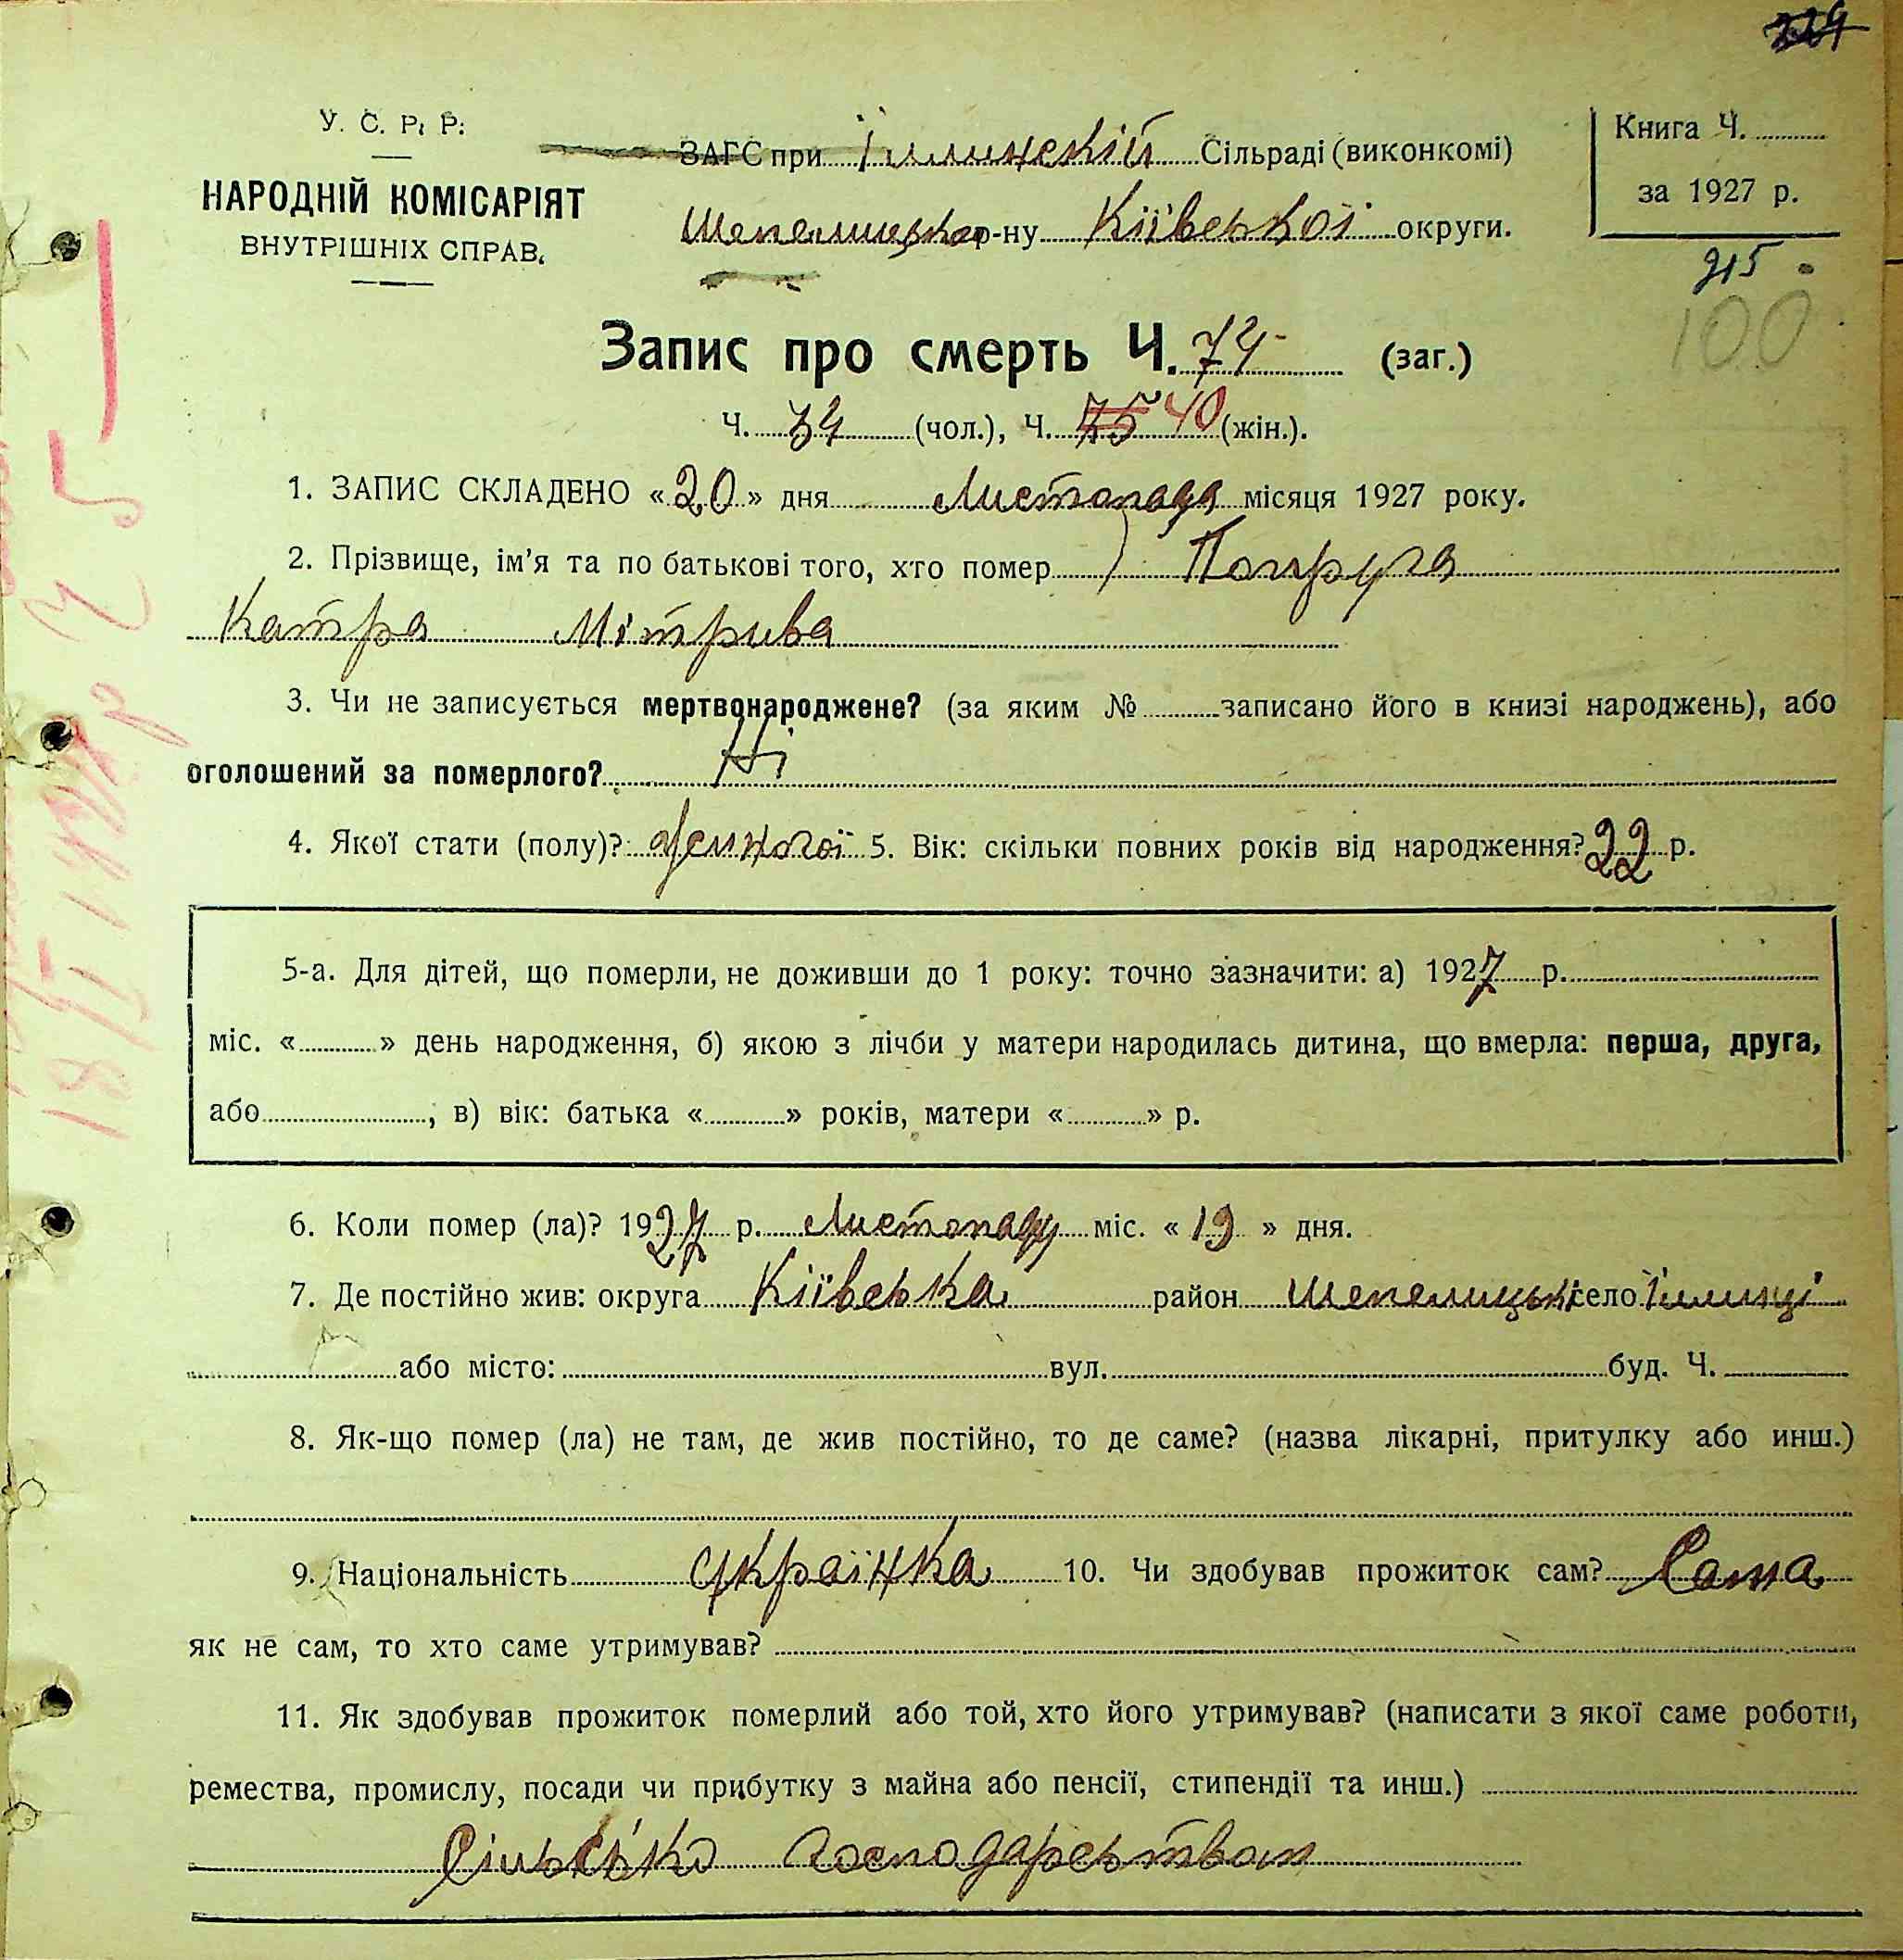 229
У. С. Р. Р.
ЗАГС при Іллинскій Сільраді (виконкомі)
Книга Ч.
НАРОДНІЙ КОМІСАРІЯТ
ВНУТРІШНІХ СПРАВ.
за 1927 р.
Шепелицького р-ну Київської округи.
215
100
Запис про смерть Ч. 74 (заг.)
Ч. 34 (чол.), Ч. 75 40 (жін.).
1. ЗАПИС СКЛАДЕНО «20» дня Листопада місяця 1927 року.
2. Прізвище, ім'я та по батькові того, хто помер
Катря Мітрива
3. Чи не записується мертвонароджене? (за яким № записано його в книзі народжень), або
оголошений за померлого? Ні
4. Якої стати (полу)? Женочої 5. Вік: скільки повних років від народження? 22 р.
5-а. Для дітей, що померли, не доживши до 1 року: точно зазначити: а) 1927 р.
міс. « » день народження, б) якою з лічби у матери народилась дитина, що вмерла: перша, друга,
або , в) вік: батька « » років, матери « » р.
6. Коли помер (ла)? 1927 р. Листопаду міс. «19» дня.
7. Де постійно жив: округа Київська район Шепелицьки село Іллинці
або місто: вул. буд. Ч.
8. Як-що помер (ла) не там, де жив постійно, то де саме? (назва лікарні, притулку або инш.)
9. Національність Українка 10. Чи здобував прожиток сам? Сама
як не сам, то хто саме утримував?
11. Як здобував прожиток померлий або той, хто його утримував? (написати з якої саме роботи,
ремества, промислу, посади чи прибутку з майна або пенсії, стипендії та инш.)
Сільсько господарством